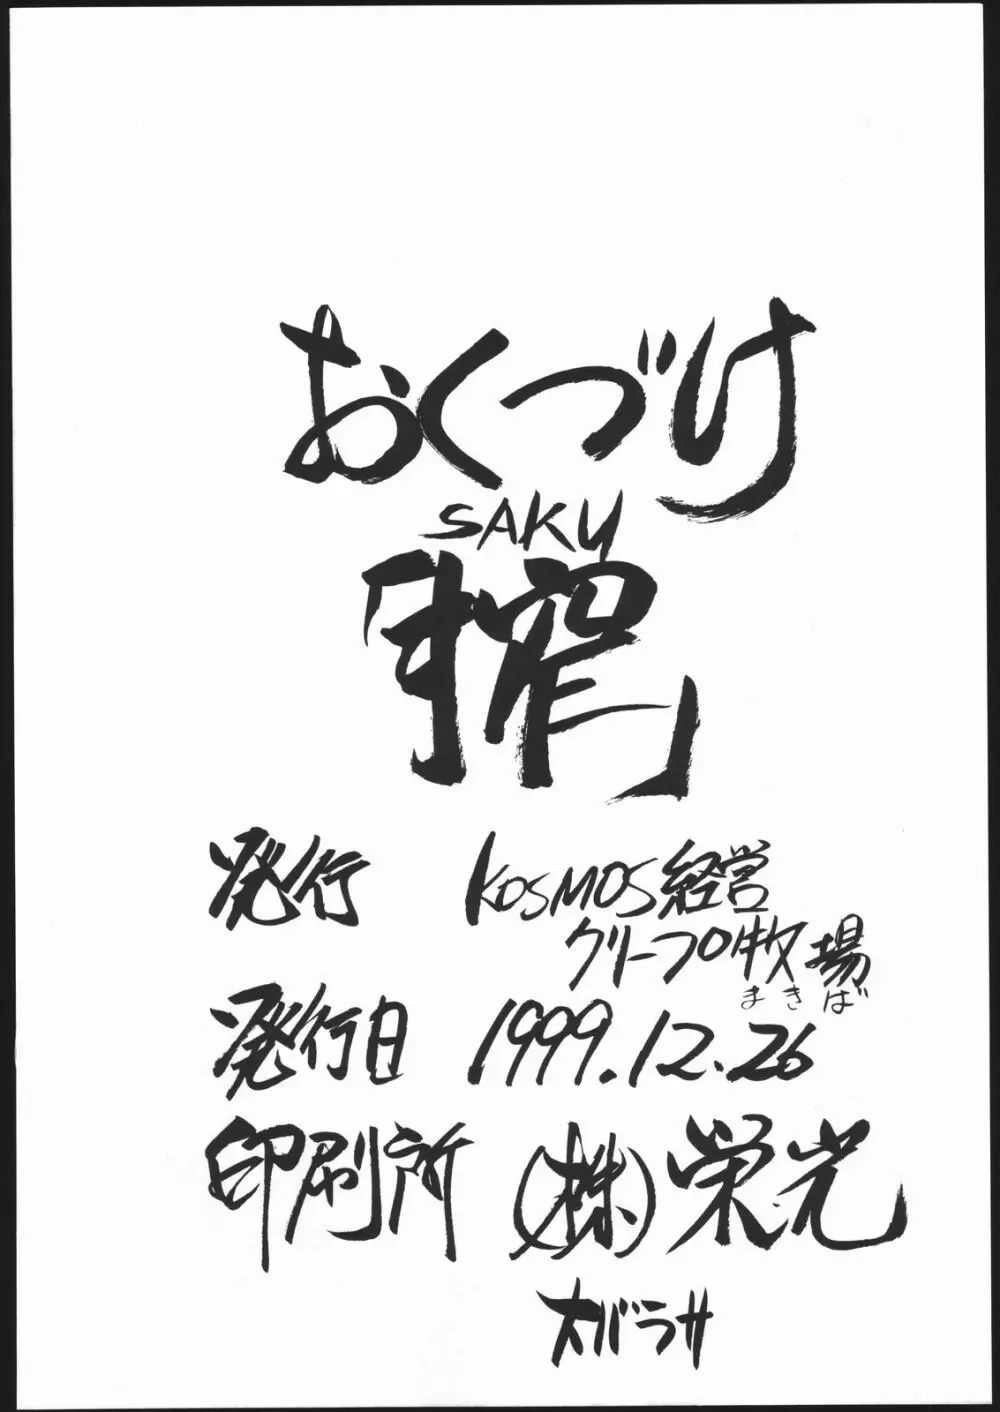 おくづけ
SAKU
「搾」
発行 KOSMOS経営
クリープ牧場
まきば
発行日 1999.12.26
印刷所 (株)栄光
オバラサ